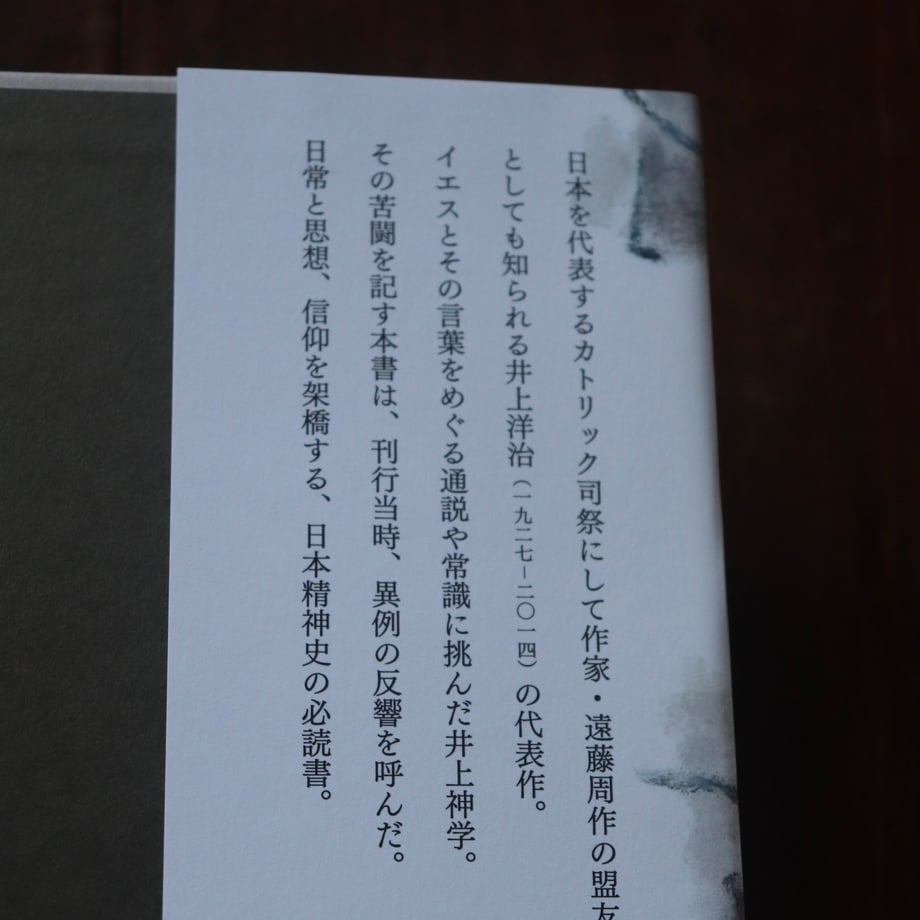 日本を代表するカトリック司祭にして作家・遠藤周作の盟友
としても知られる井上洋治（一九二七－二〇一四）の代表作。
イエスとその言葉をめぐる通説や常識に挑んだ井上神学。
その苦闘を記す本書は、刊行当時、異例の反響を呼んだ。
日常と思想、信仰を架橋する、日本精神史の必読書。